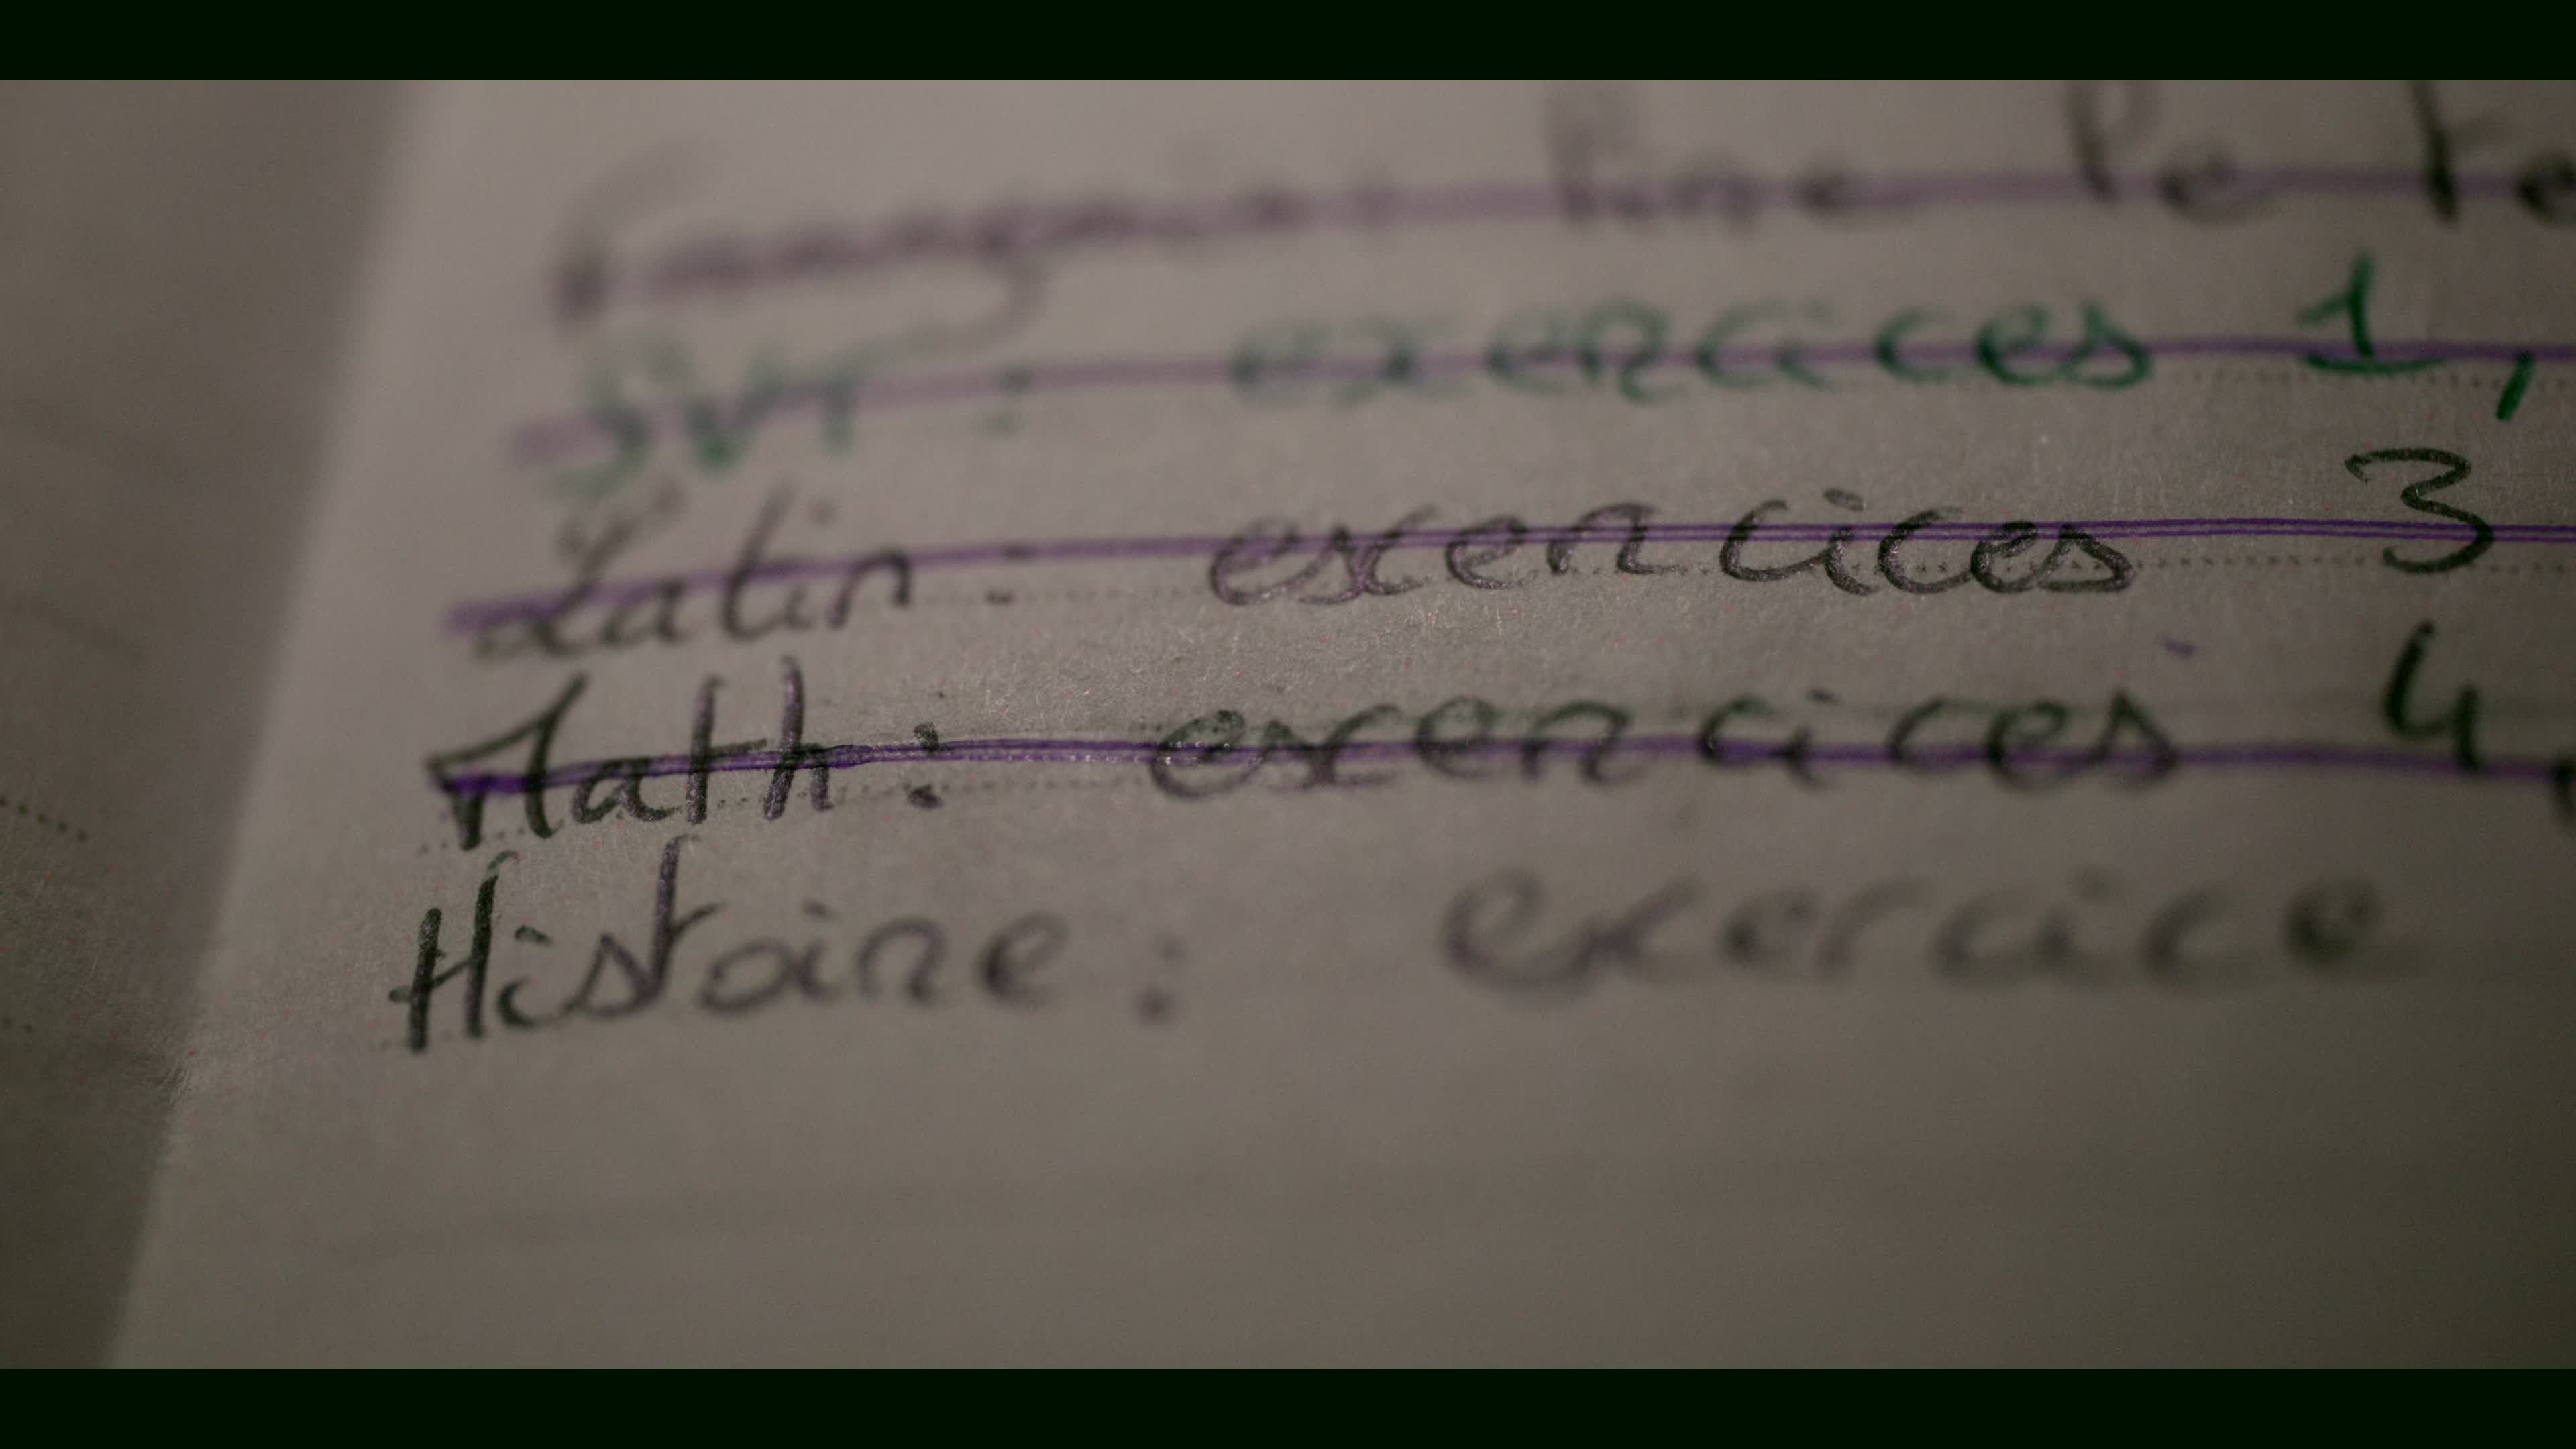 Français lire le te
SVT : exercices 1,
Latin : exercices 3
Math : exercices 4,
Histoire : exercice